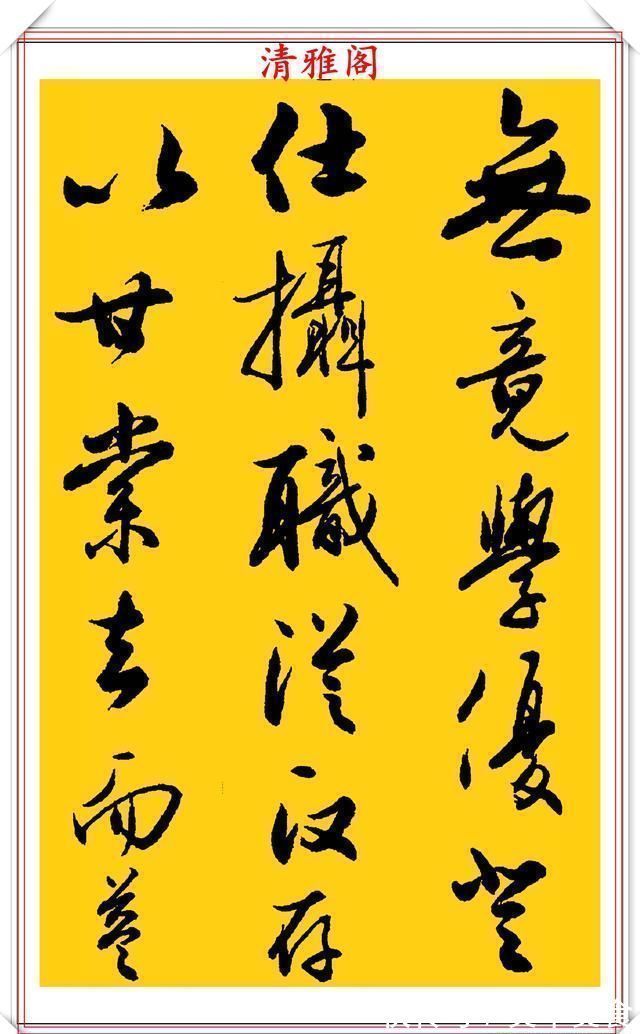 清雅阁
無竟學優登
仕攝職從政存
以甘棠去而益